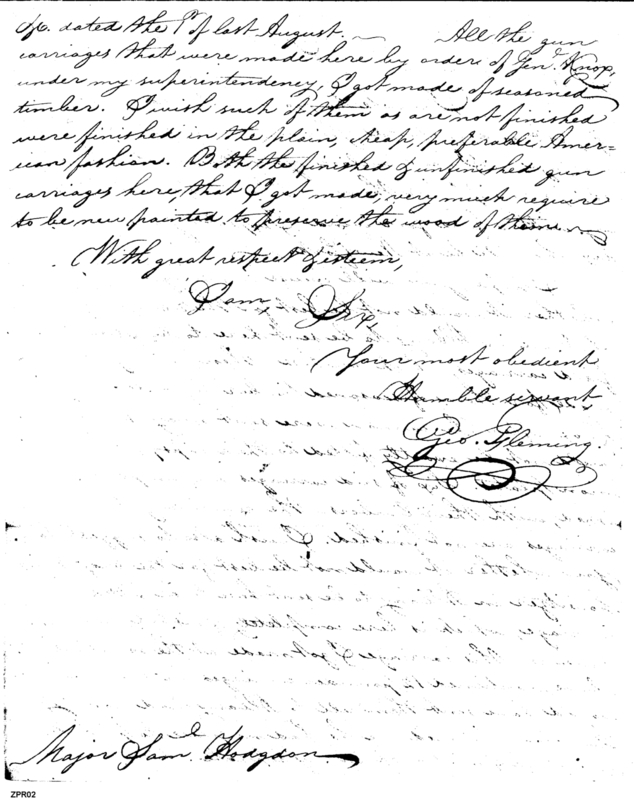 &c. dated the 1st of last August. — All the gun
carriages that were made here by order of Genl. Knox,
under my superintendency, I got made of seasoned
timber. I wish such of them as are not finished
were finished in the plain, cheap, preferable Amer=
ican fashion. Both the finished & unfinished gun
carriages here, that I got made, very much require
to be new painted to preserve the wood of them.
With great respect & esteem,
I am, Sir,
Your most obedient
Humble servant
Geo. Fleming.
Major Saml. Hodgdon
ZPR02